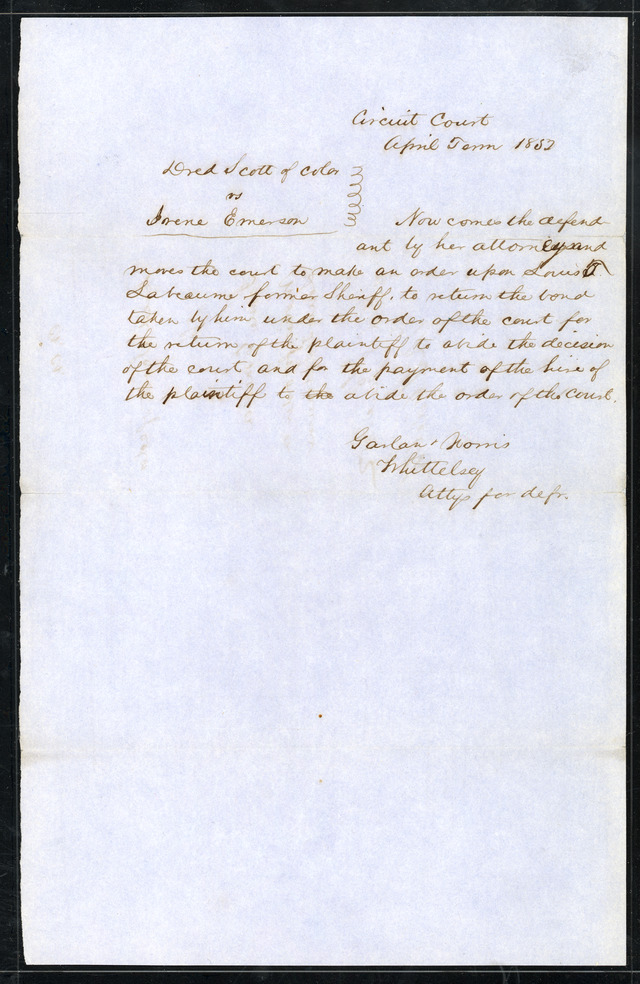 Circuit Court
April Term 1852
Dred Scott of color
vs
Irene Emerson
Now comes the defend-
ant by her attorneys and
moves the court to make an order upon Louis T
Labeaume former Sheriff, to return the bond
taken by him under the order of the court for
the return of the plaintiff to abide the decision
of the court and for the payment of the hire of
the plaintiff to the abide the order of the Court.
Garland Norris
Whittelsey
Attys for deft.